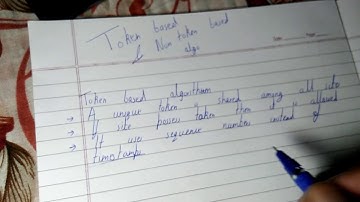 Token based
& Non token based
algo
Token based algorithm
→ A unique token shared among all site
→ If site posses token then it is allowed
→ It use sequence number instead of
timestamp